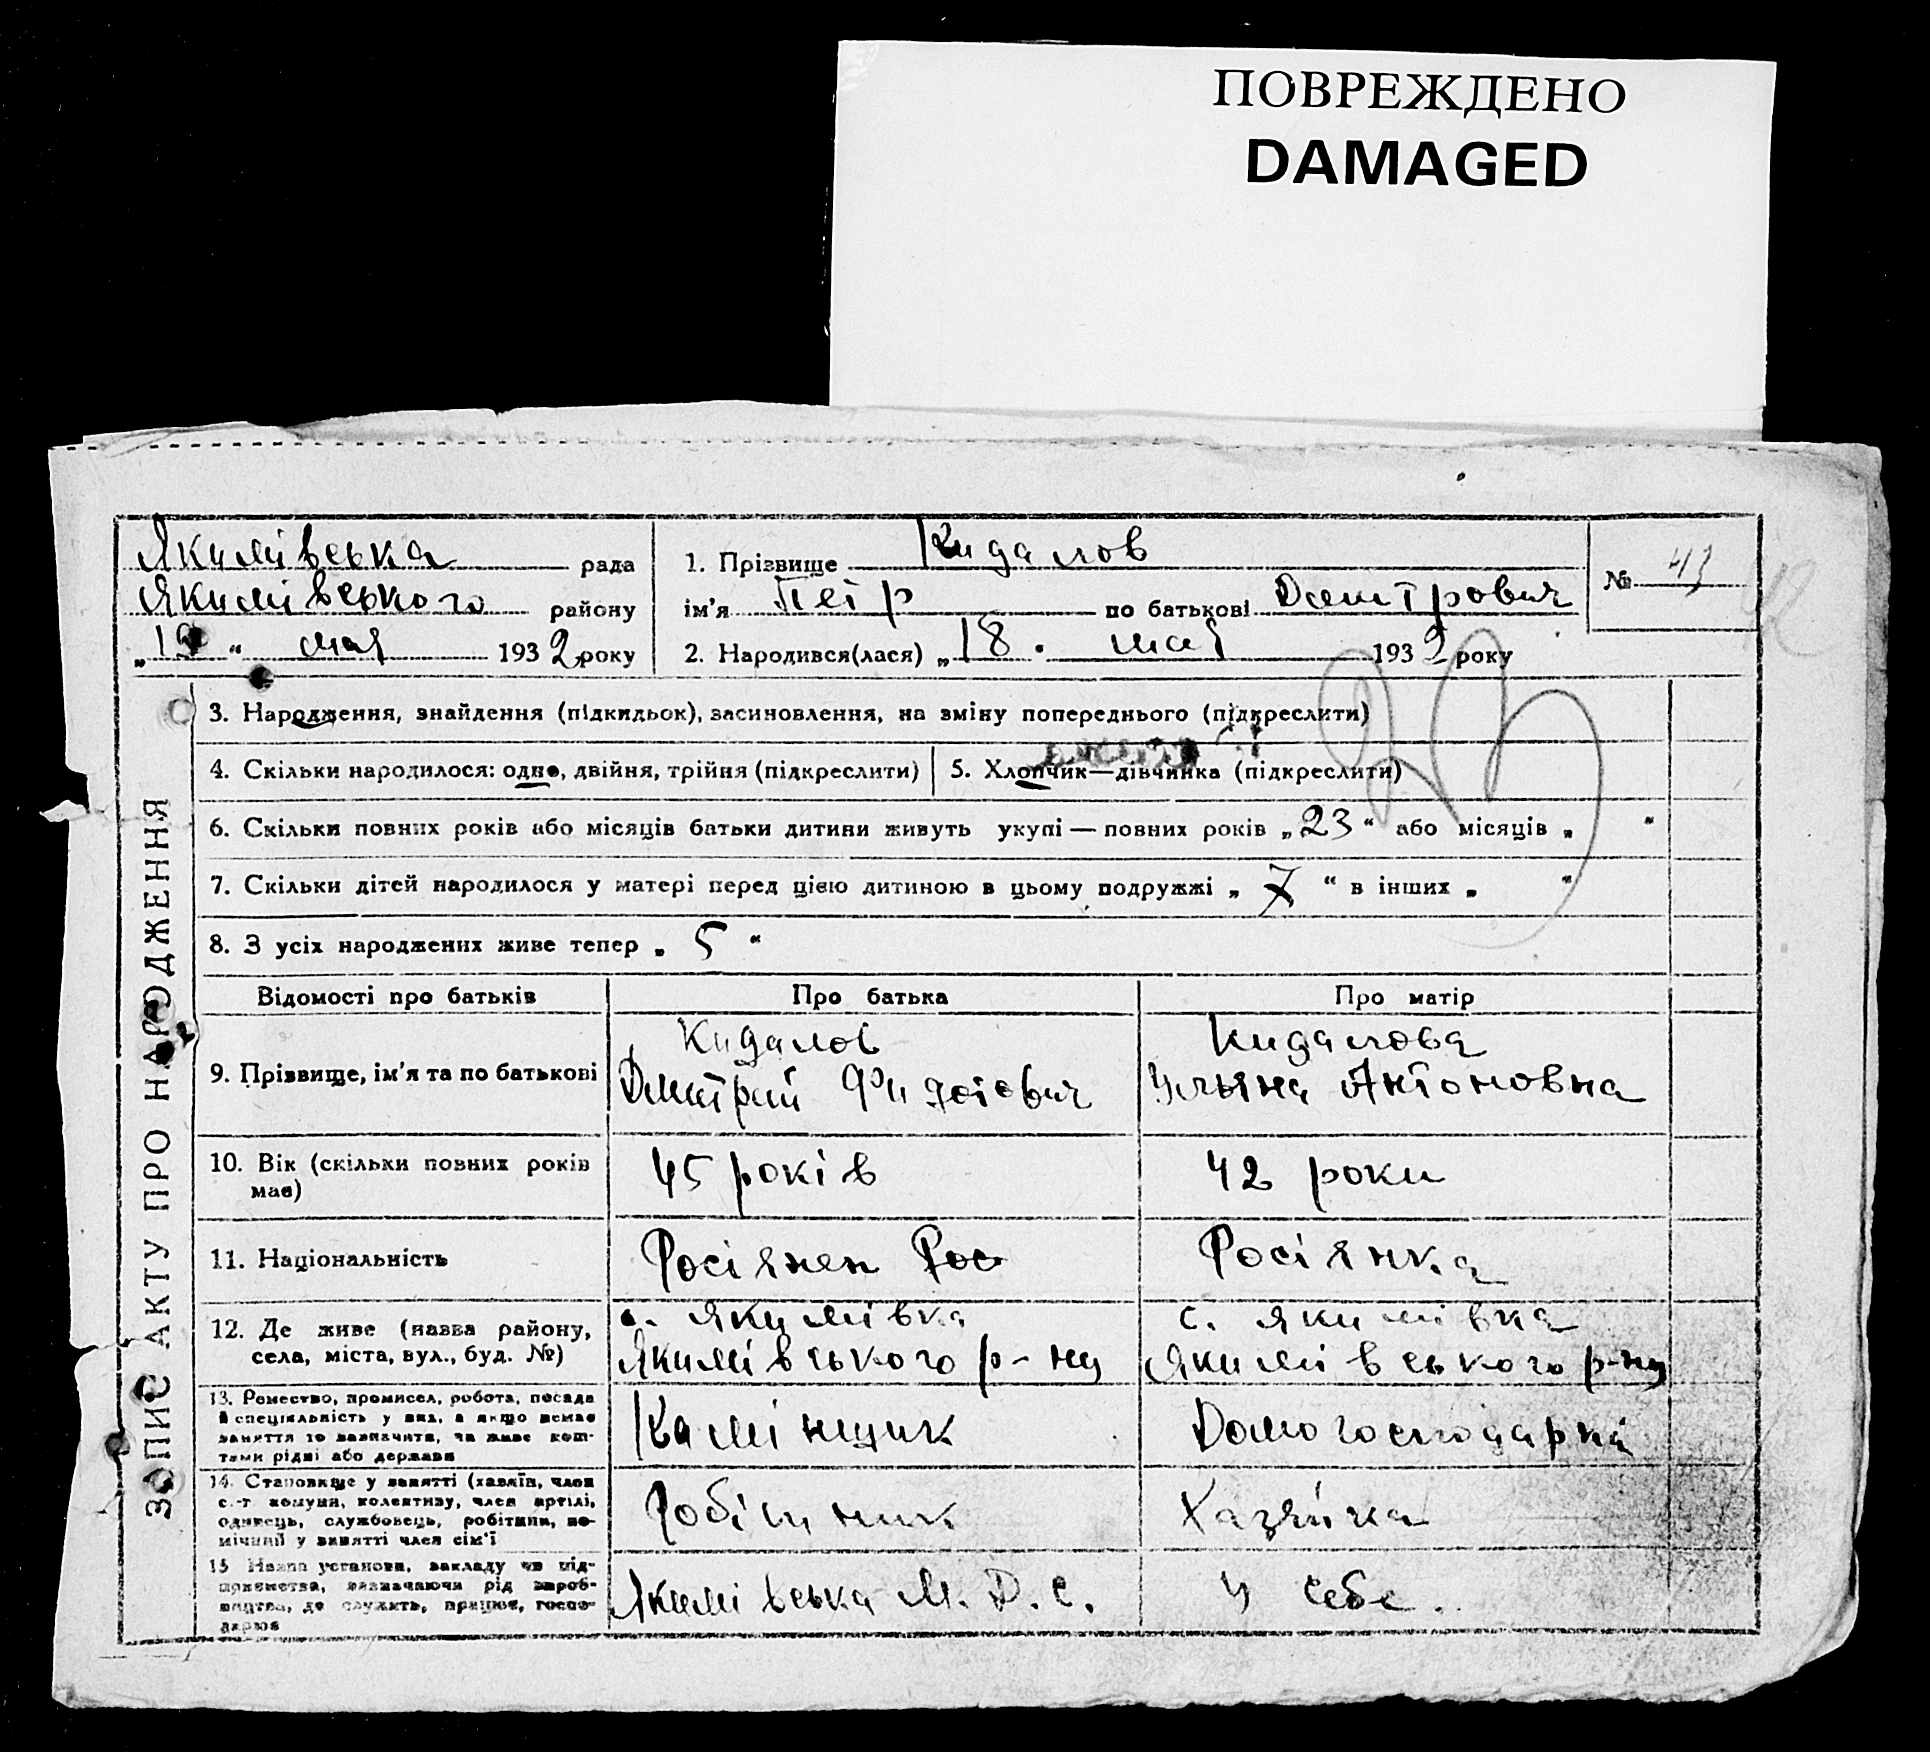 ПОВРЕЖДЕНО
DAMAGED
Якимівська рада
Якимівського району
„19“ мая 1932 року
1. Прізвище Кидалов
ім'я Петр по батькові Дмитрович
2. Народився(лася) „18. мая 1932 року
№ 43
ЗАПИС АКТУ ПРО НАРОДЖЕННЯ
3. Народження, знайдення (підкидьок), засиновлення, на зміну попереднього (підкреслити)
4. Скільки народилося: одне, двійня, трійня (підкреслити)
5. Хлопчик—дівчинка (підкреслити)
6. Скільки повних років або місяців батьки дитини живуть укупі — повних років „23“ або місяців „ “
7. Скільки дітей народилося у матері перед цією дитиною в цьому подружжі „7“ в інших „ “
8. З усіх народжених живе тепер „5“
Відомості про батьків Про батька Про матір
9. Прізвище, ім'я та по батькові
Кидалов
Дмитрий Фидотович
Кидалова
Ульяна Антоновна
10. Вік (скільки повних років має)
45 років
42 роки
11. Національність
Росіянен Рос
Росіянка
12. Де живе (назва району, села, міста, вул., буд. №)
с. Якимівка
Якимівського р-ну
с. Якимівка
Якимівського р-ну
13. Ремество, промисел, робота, посада
й спеціяльність у них, а якщо немає
заняття то зазначити, чи живе кош-
тами рідні або держави
Камінщик
Домогосподарка
14. Становище у занятті (хазяїн, член
с.-г. комуни, колективу, член артілі,
одинець, службовець, робітник, по-
мічний у занятті член сім'ї
Робітник
Хазяйка
15 Назва установи, закладу чи під-
приємства, зазначаючи рід вироб-
ництва, де служить, працює, госпо-
дарює
Якимівська М. Д. С.
У себе.